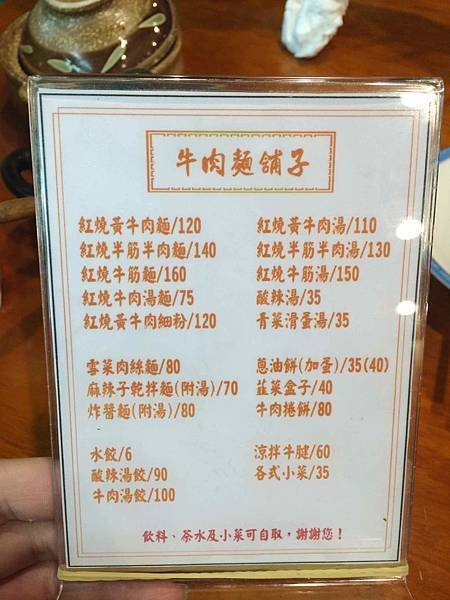 牛肉麵舖子
紅燒黃牛肉麵/120
紅燒半筋半肉麵/140
紅燒牛筋麵/160
紅燒牛肉湯麵/75
紅燒黃牛肉細粉/120
紅燒黃牛肉湯/110
紅燒半筋半肉湯/130
紅燒牛筋湯/150
酸辣湯/35
青菜滑蛋湯/35
雪菜肉絲麵/80
麻辣子乾拌麵(附湯)/70
炸醬麵(附湯)/80
蔥油餅(加蛋)/35(40)
韮菜盒子/40
牛肉捲餅/80
水餃/6
酸辣湯餃/90
牛肉湯餃/100
涼拌牛腱/60
各式小菜/35
飲料、茶水及小菜可自取，謝謝您！